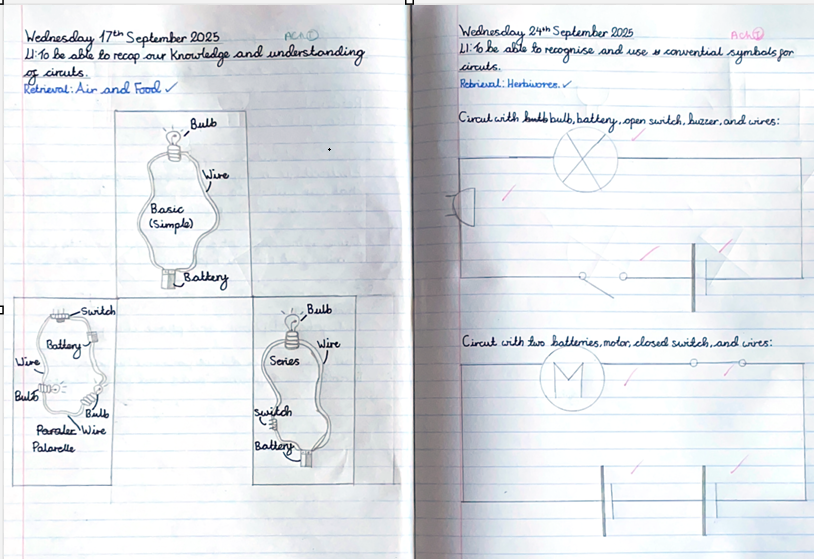 Wednesday 17th September 2025
ACh①
LI: To be able to recap our Knowledge and understanding
of circuts.
Retrieval: Air and Food ✓
Bulb
Wire
Basic
(Simple)
Battery
Switch
Battery
Wire
Bulb
Bulb
Wire
Palarelle
Bulb
Wire
Series
Switch
Battery
Wednesday 24th September 2025
ACh①
LI: To be able to recognise and use convential symbols for
circuts.
Retrieval: Herbivores. ✓
Circut with bulb, battery, open switch, buzzer, and wires:
Circut with two batteries, motor, closed switch, and wires:
M